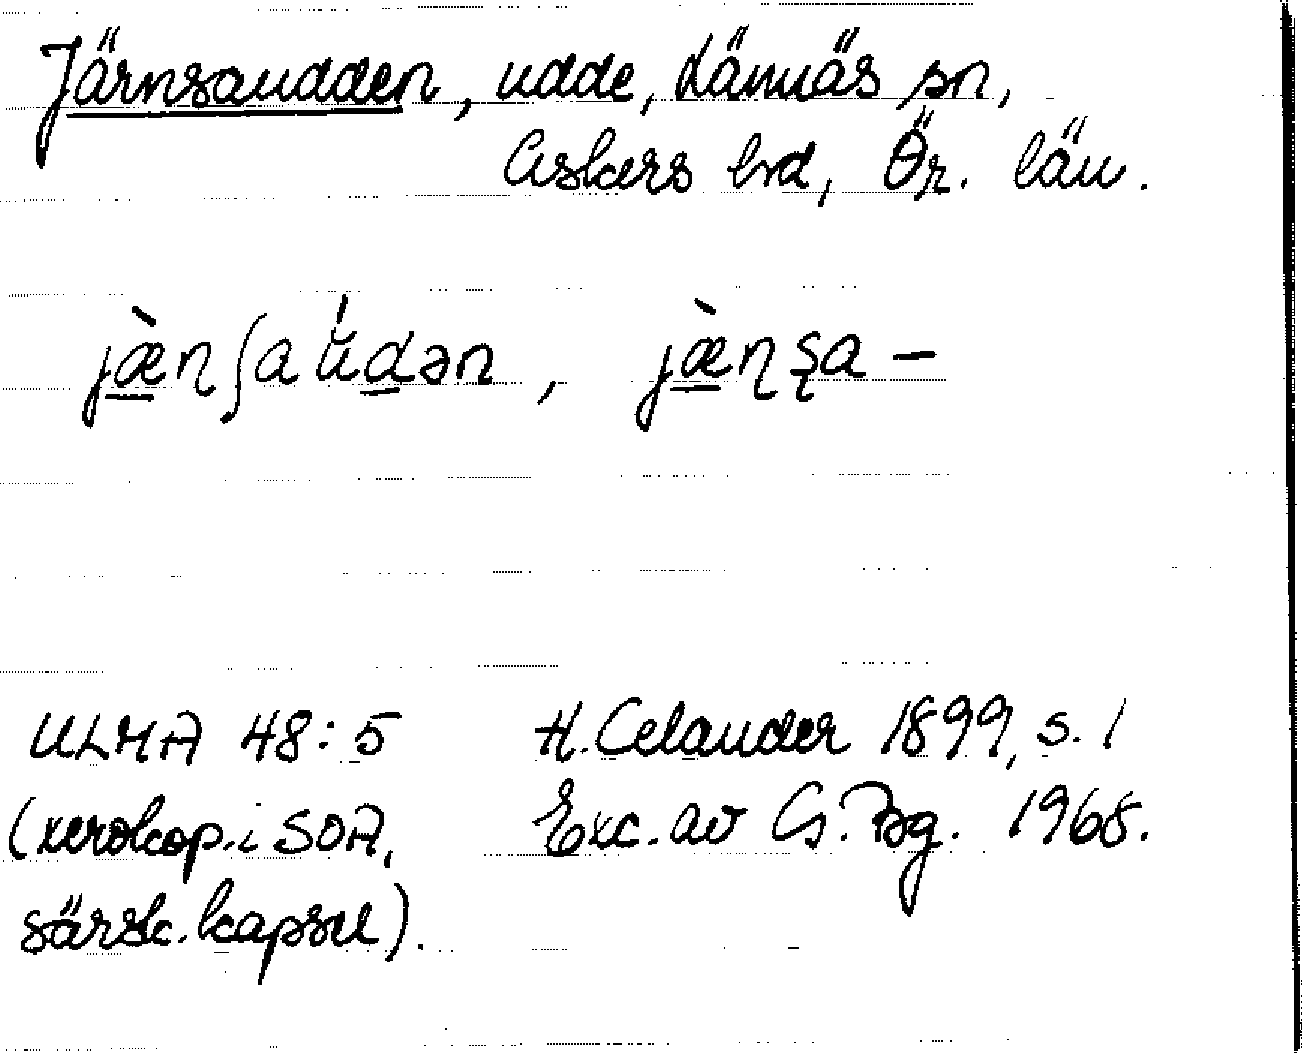 Järnsaudden, udde, Lännäs sn,
Askers hd, Ör. län.
jæ̠̀nʃaŭ́d̠ən, jæ̠̀ɳʂa –
ULMA 48:5 H. Celander 1899, s. 1
(xerokop. i SOA, Exc. av G. Bg. 1968.
särsk. kapsel).